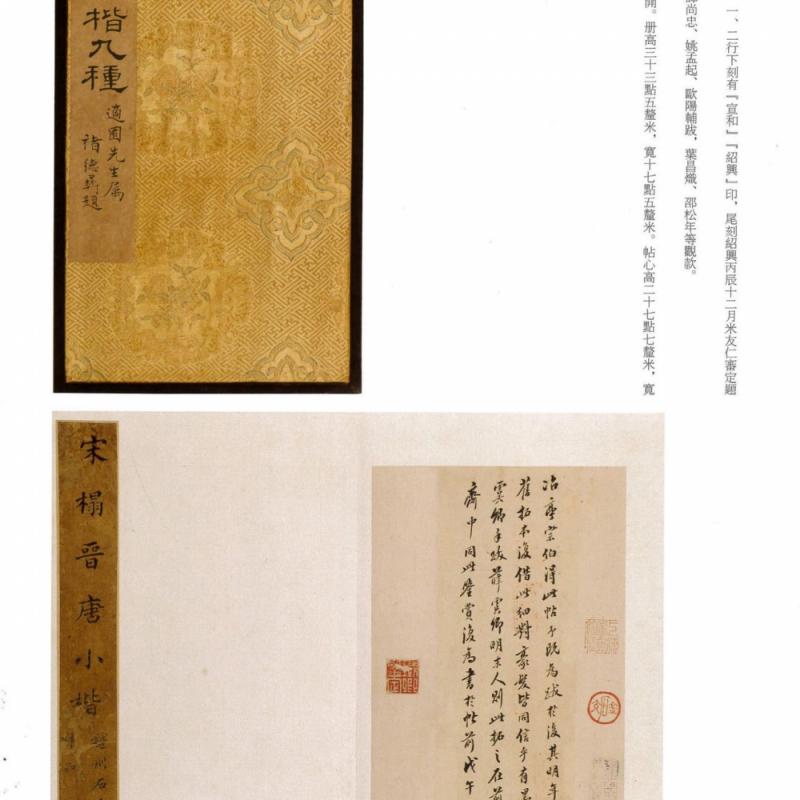 一、二行下刻有『宣和』『紹興』印，尾刻紹興丙辰十二月米友仁審定題
尚忠、姚孟起、歐陽輔跋，葉昌熾、邵松年等觀款。
開。册高三十三點五釐米，寬十七點五釐米。帖心高二十七點七釐米，寬
楷九種
適園先生属
褚德彝題
冶亭宗伯得此帖予既為跋於後其明年
舊拓本復借此細對豪髮皆同信乎有
雲卿手跋薛雲卿明末人則此拓之在前
齋中同此鑒賞復為書於帖前戊午
宋榻晉唐小楷